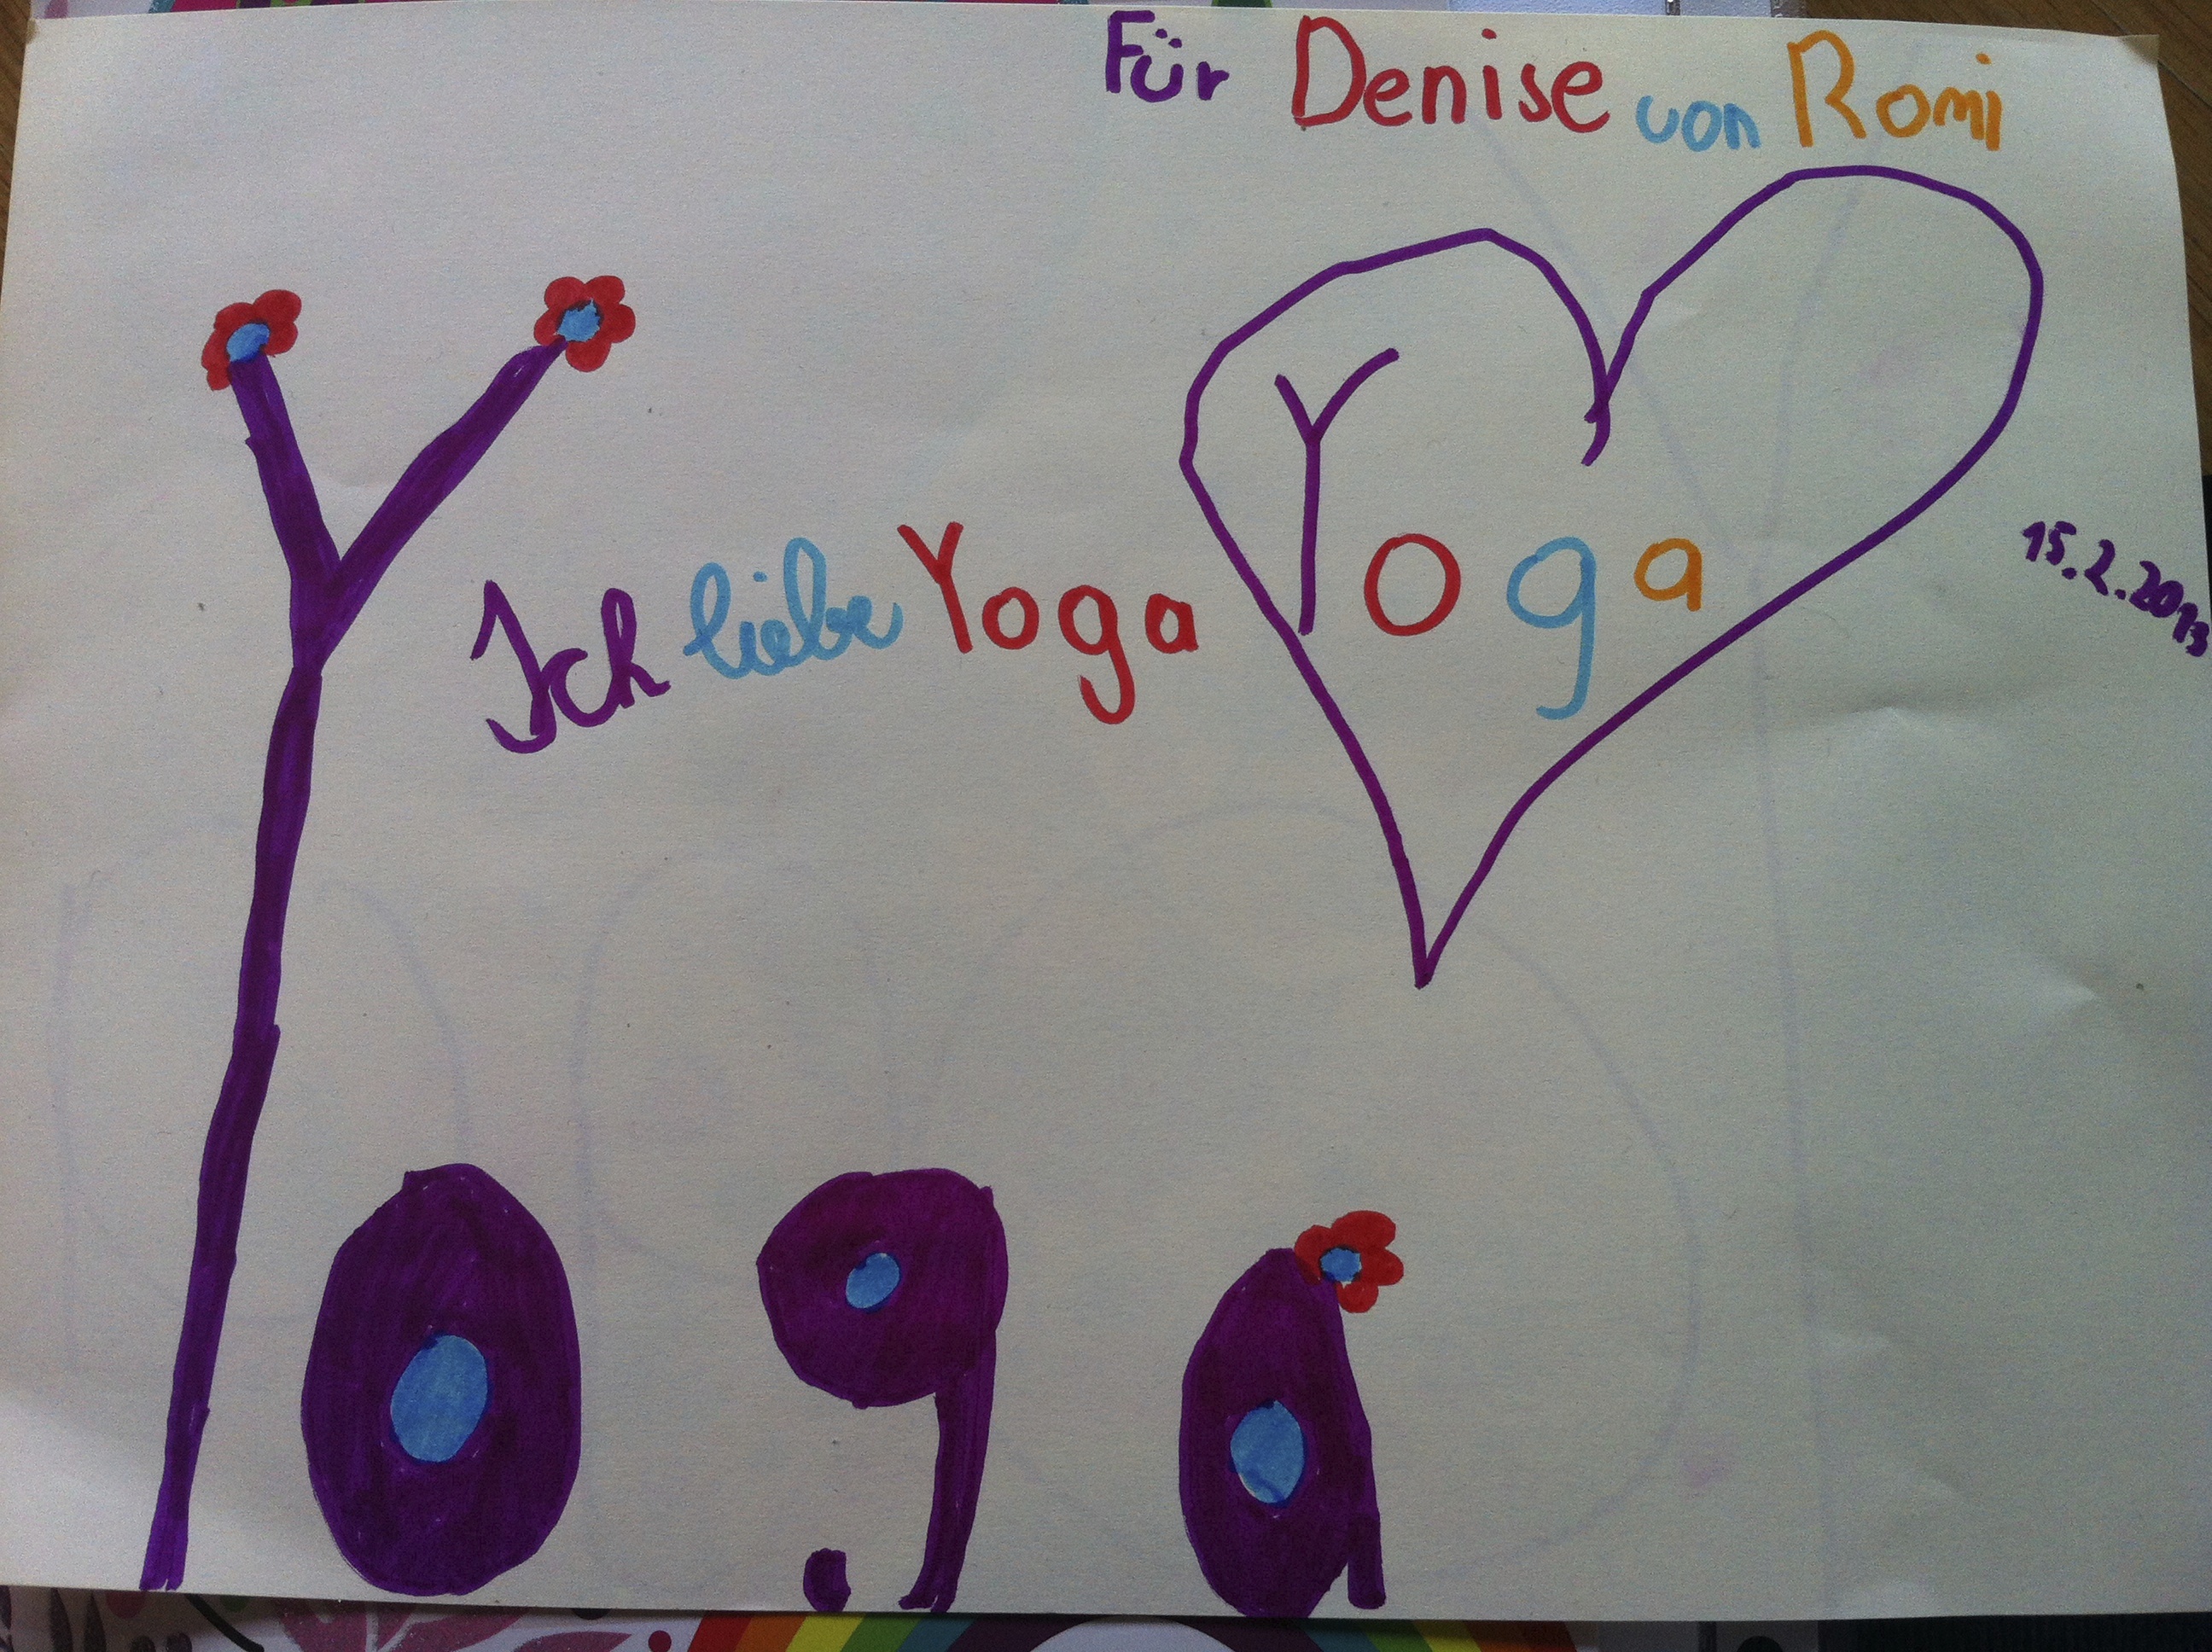 Für Denise von Romi
Ich liebe Yoga
Yoga
15.2.2013
Yoga